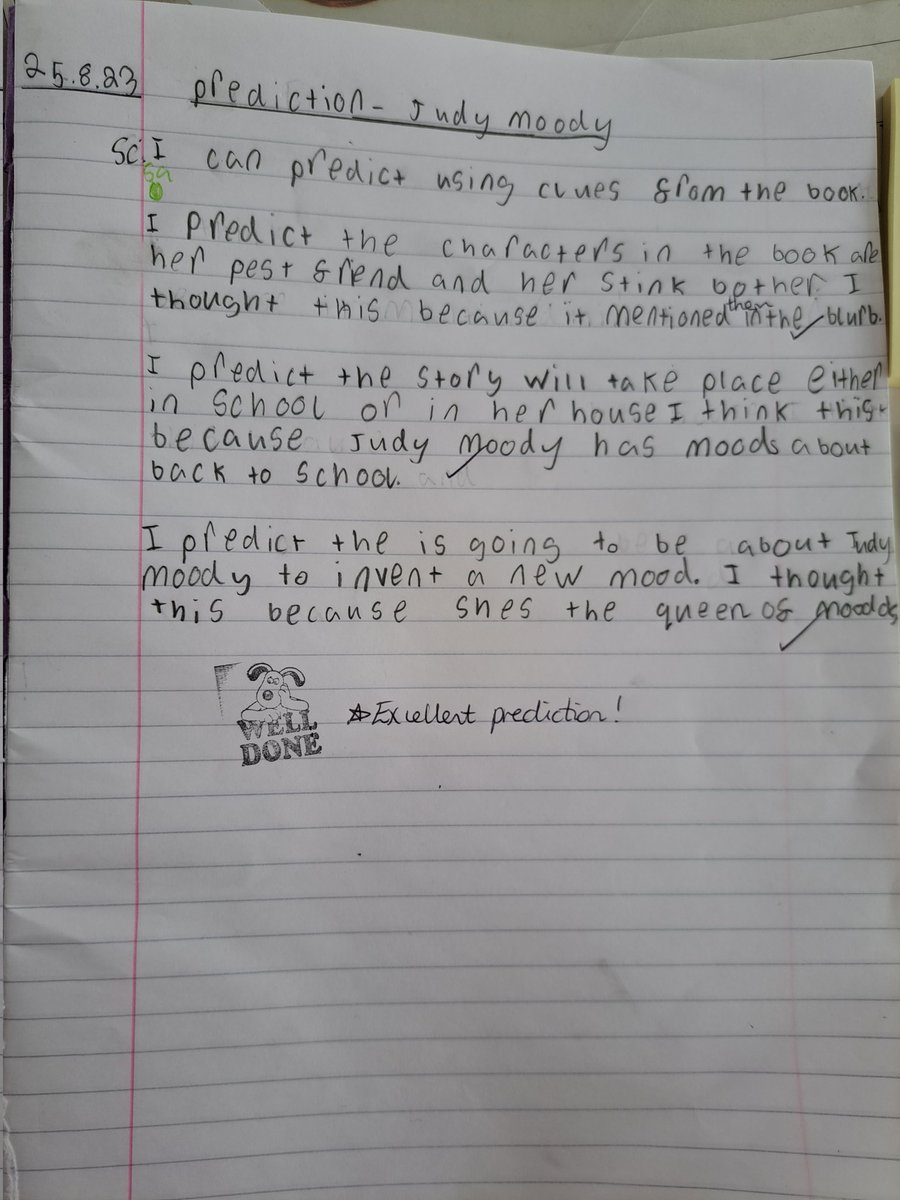 25.8.23 prediction - Judy moody
SC: I can predict using clues from the book.
sa
I predict the characters in the book are
her pest friend and her Stink bother. I
thought this because it mentioned them in the blurb.
I predict the story will take place either
in school or in her house I think this
because Judy moody has moods about
back to school.
I predict the is going to be about Judy
moody to invent a new mood. I thought
this because shes the queen of moodds
WELL
DONE
Excellent prediction!